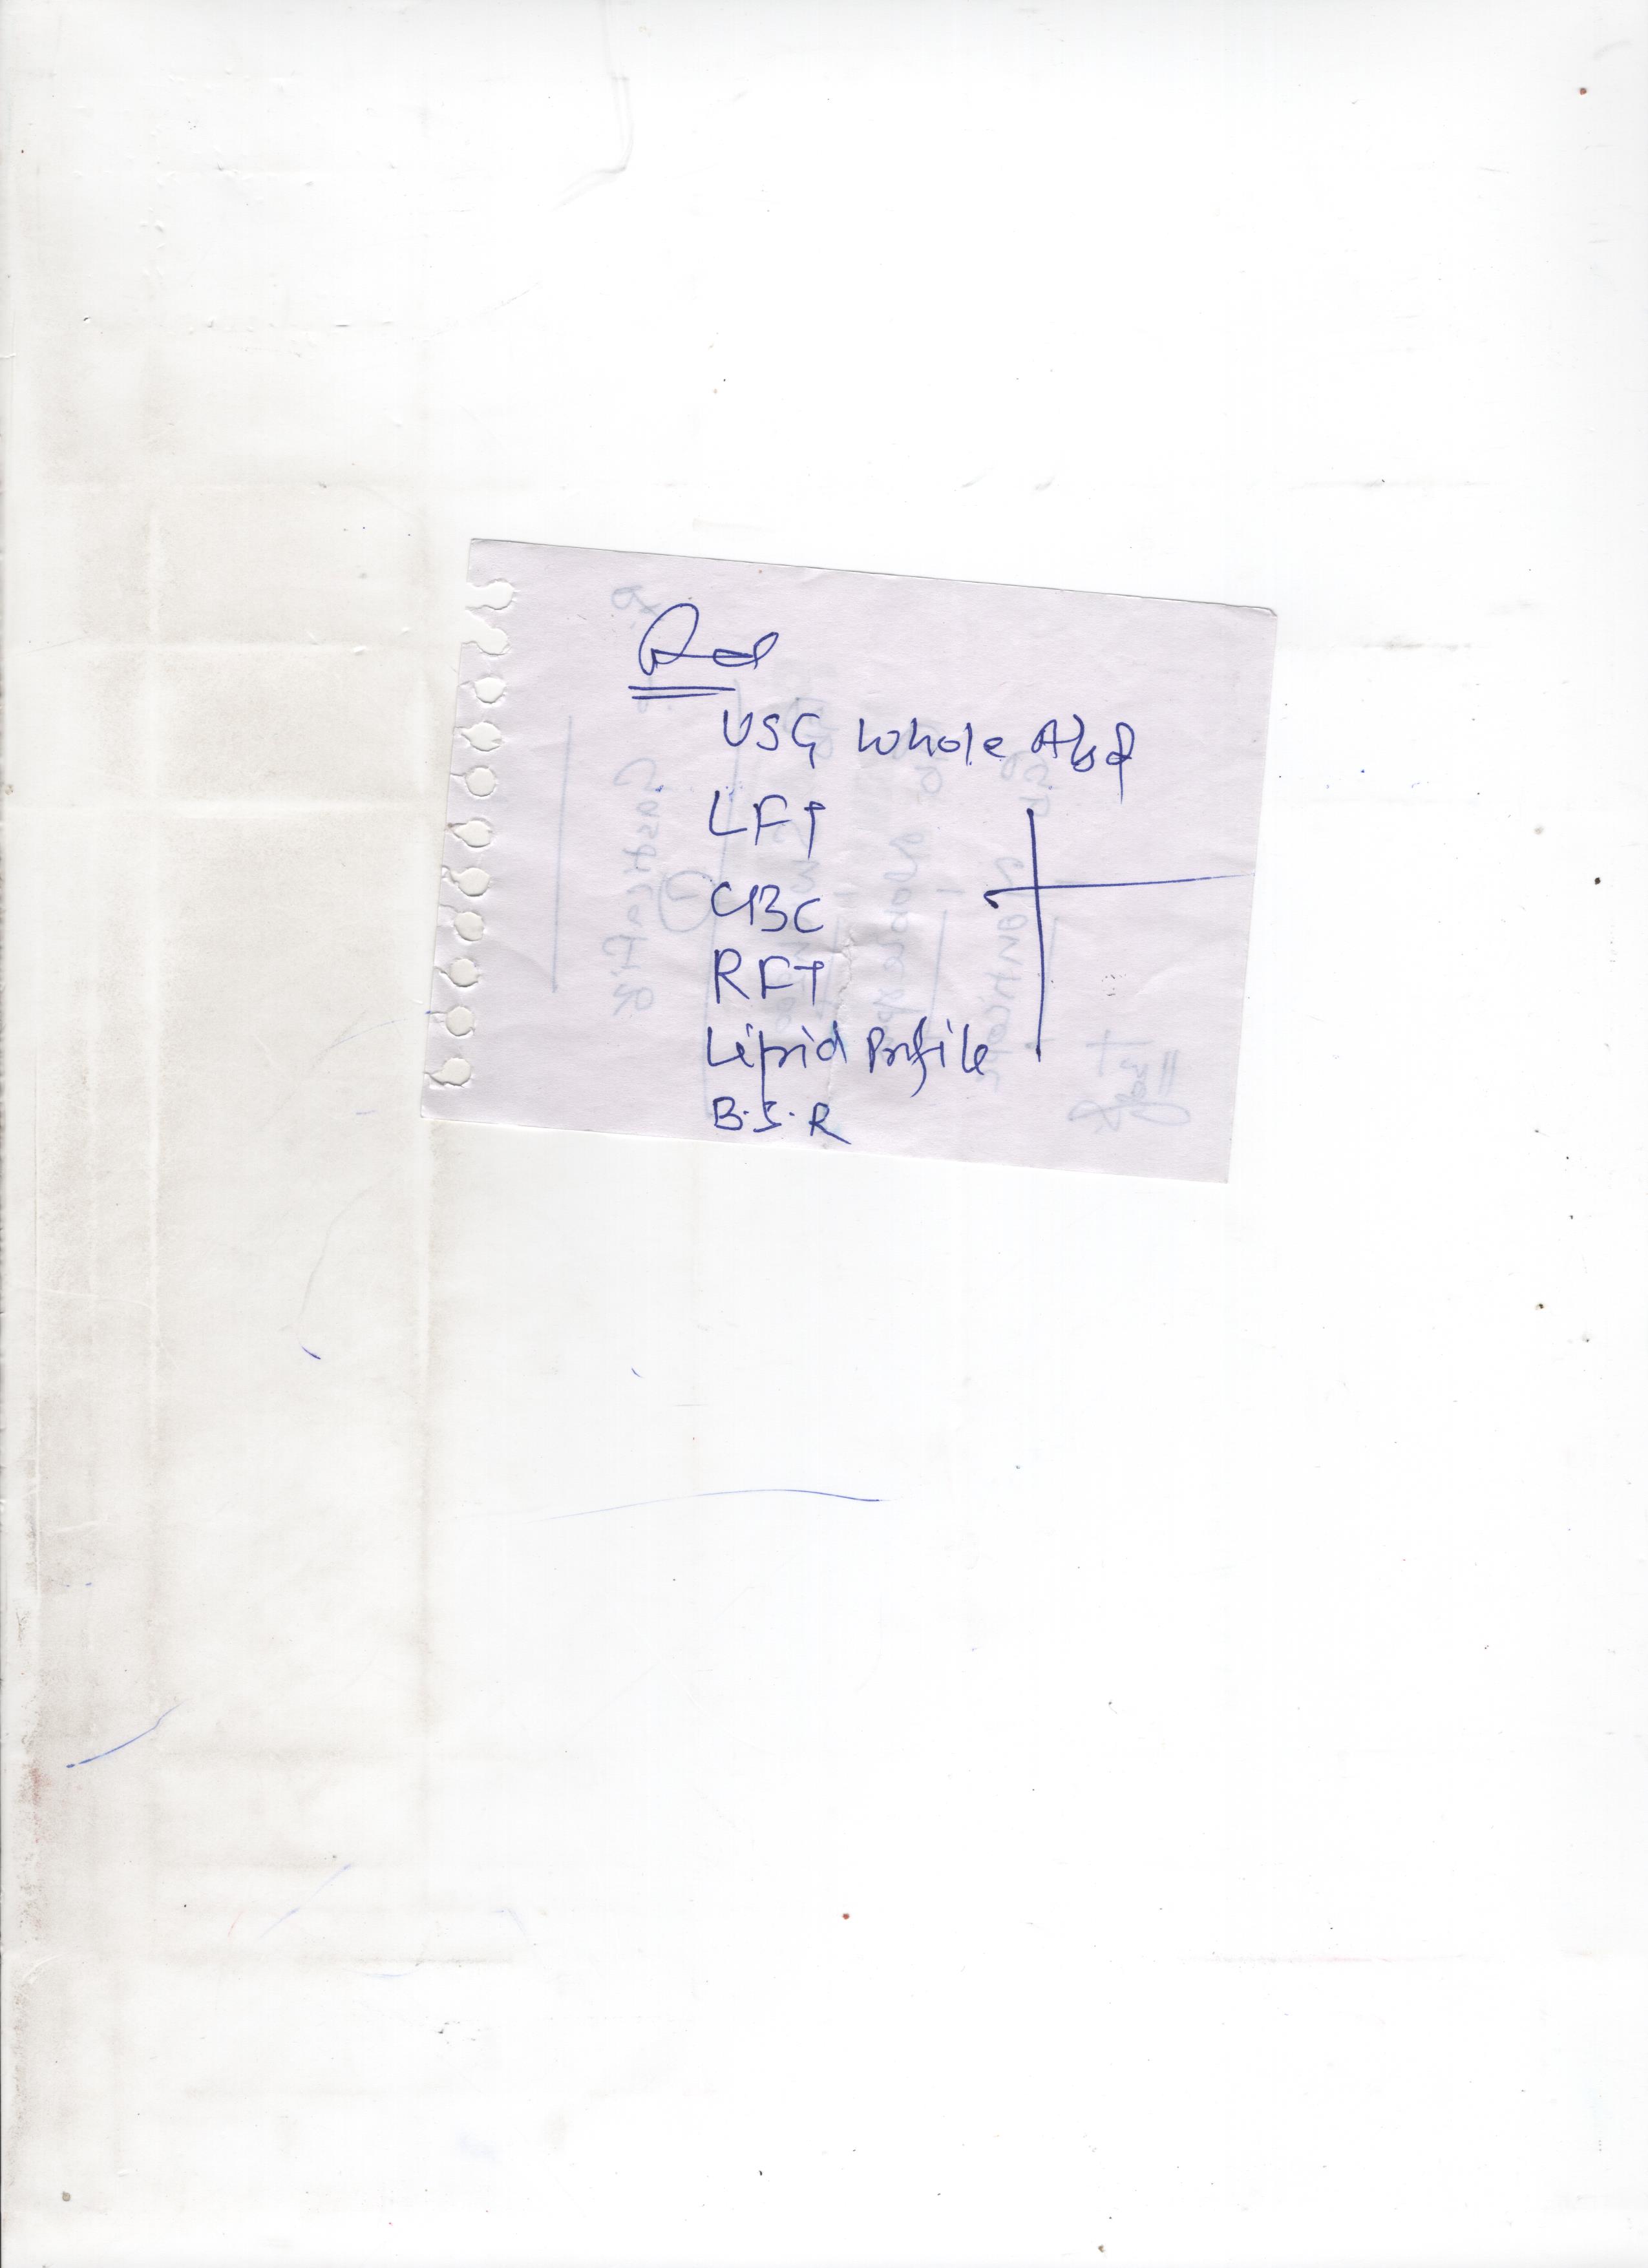 Rd
USG Whole Abd
LFT
CBC
RFT
Lipid Profile
B.S.R